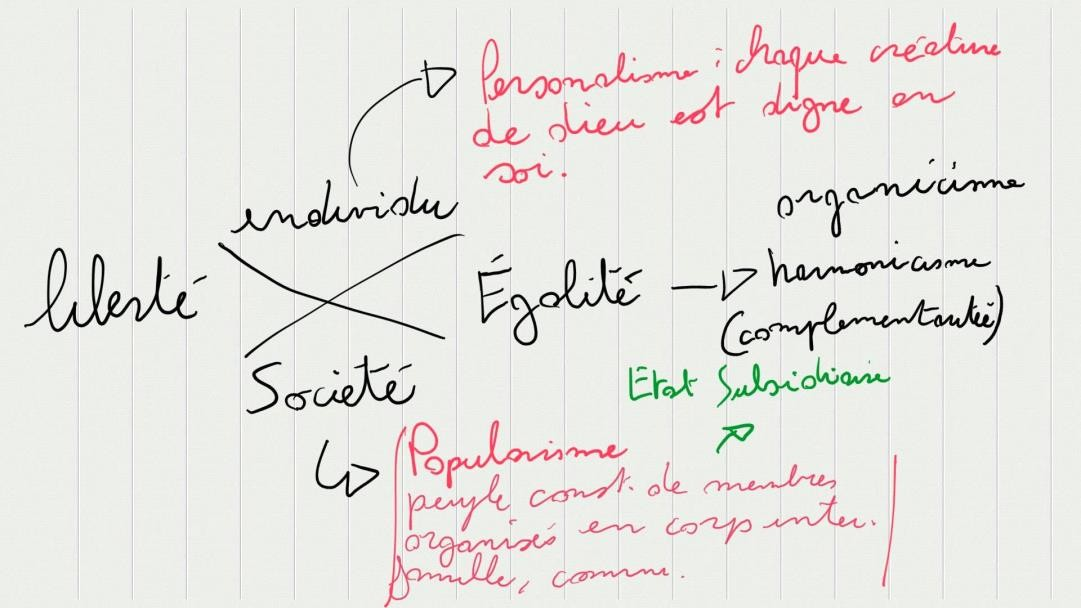 Personalisme : chaque créature
de dieu est digne en
soi.
individu
organicisme
liberté
Égalité
harmonicisme
(complementarité)
Société
Etat Subsidiaire
Popularisme
peuple const. de membres
organisés en corp inter.
famille, commu.